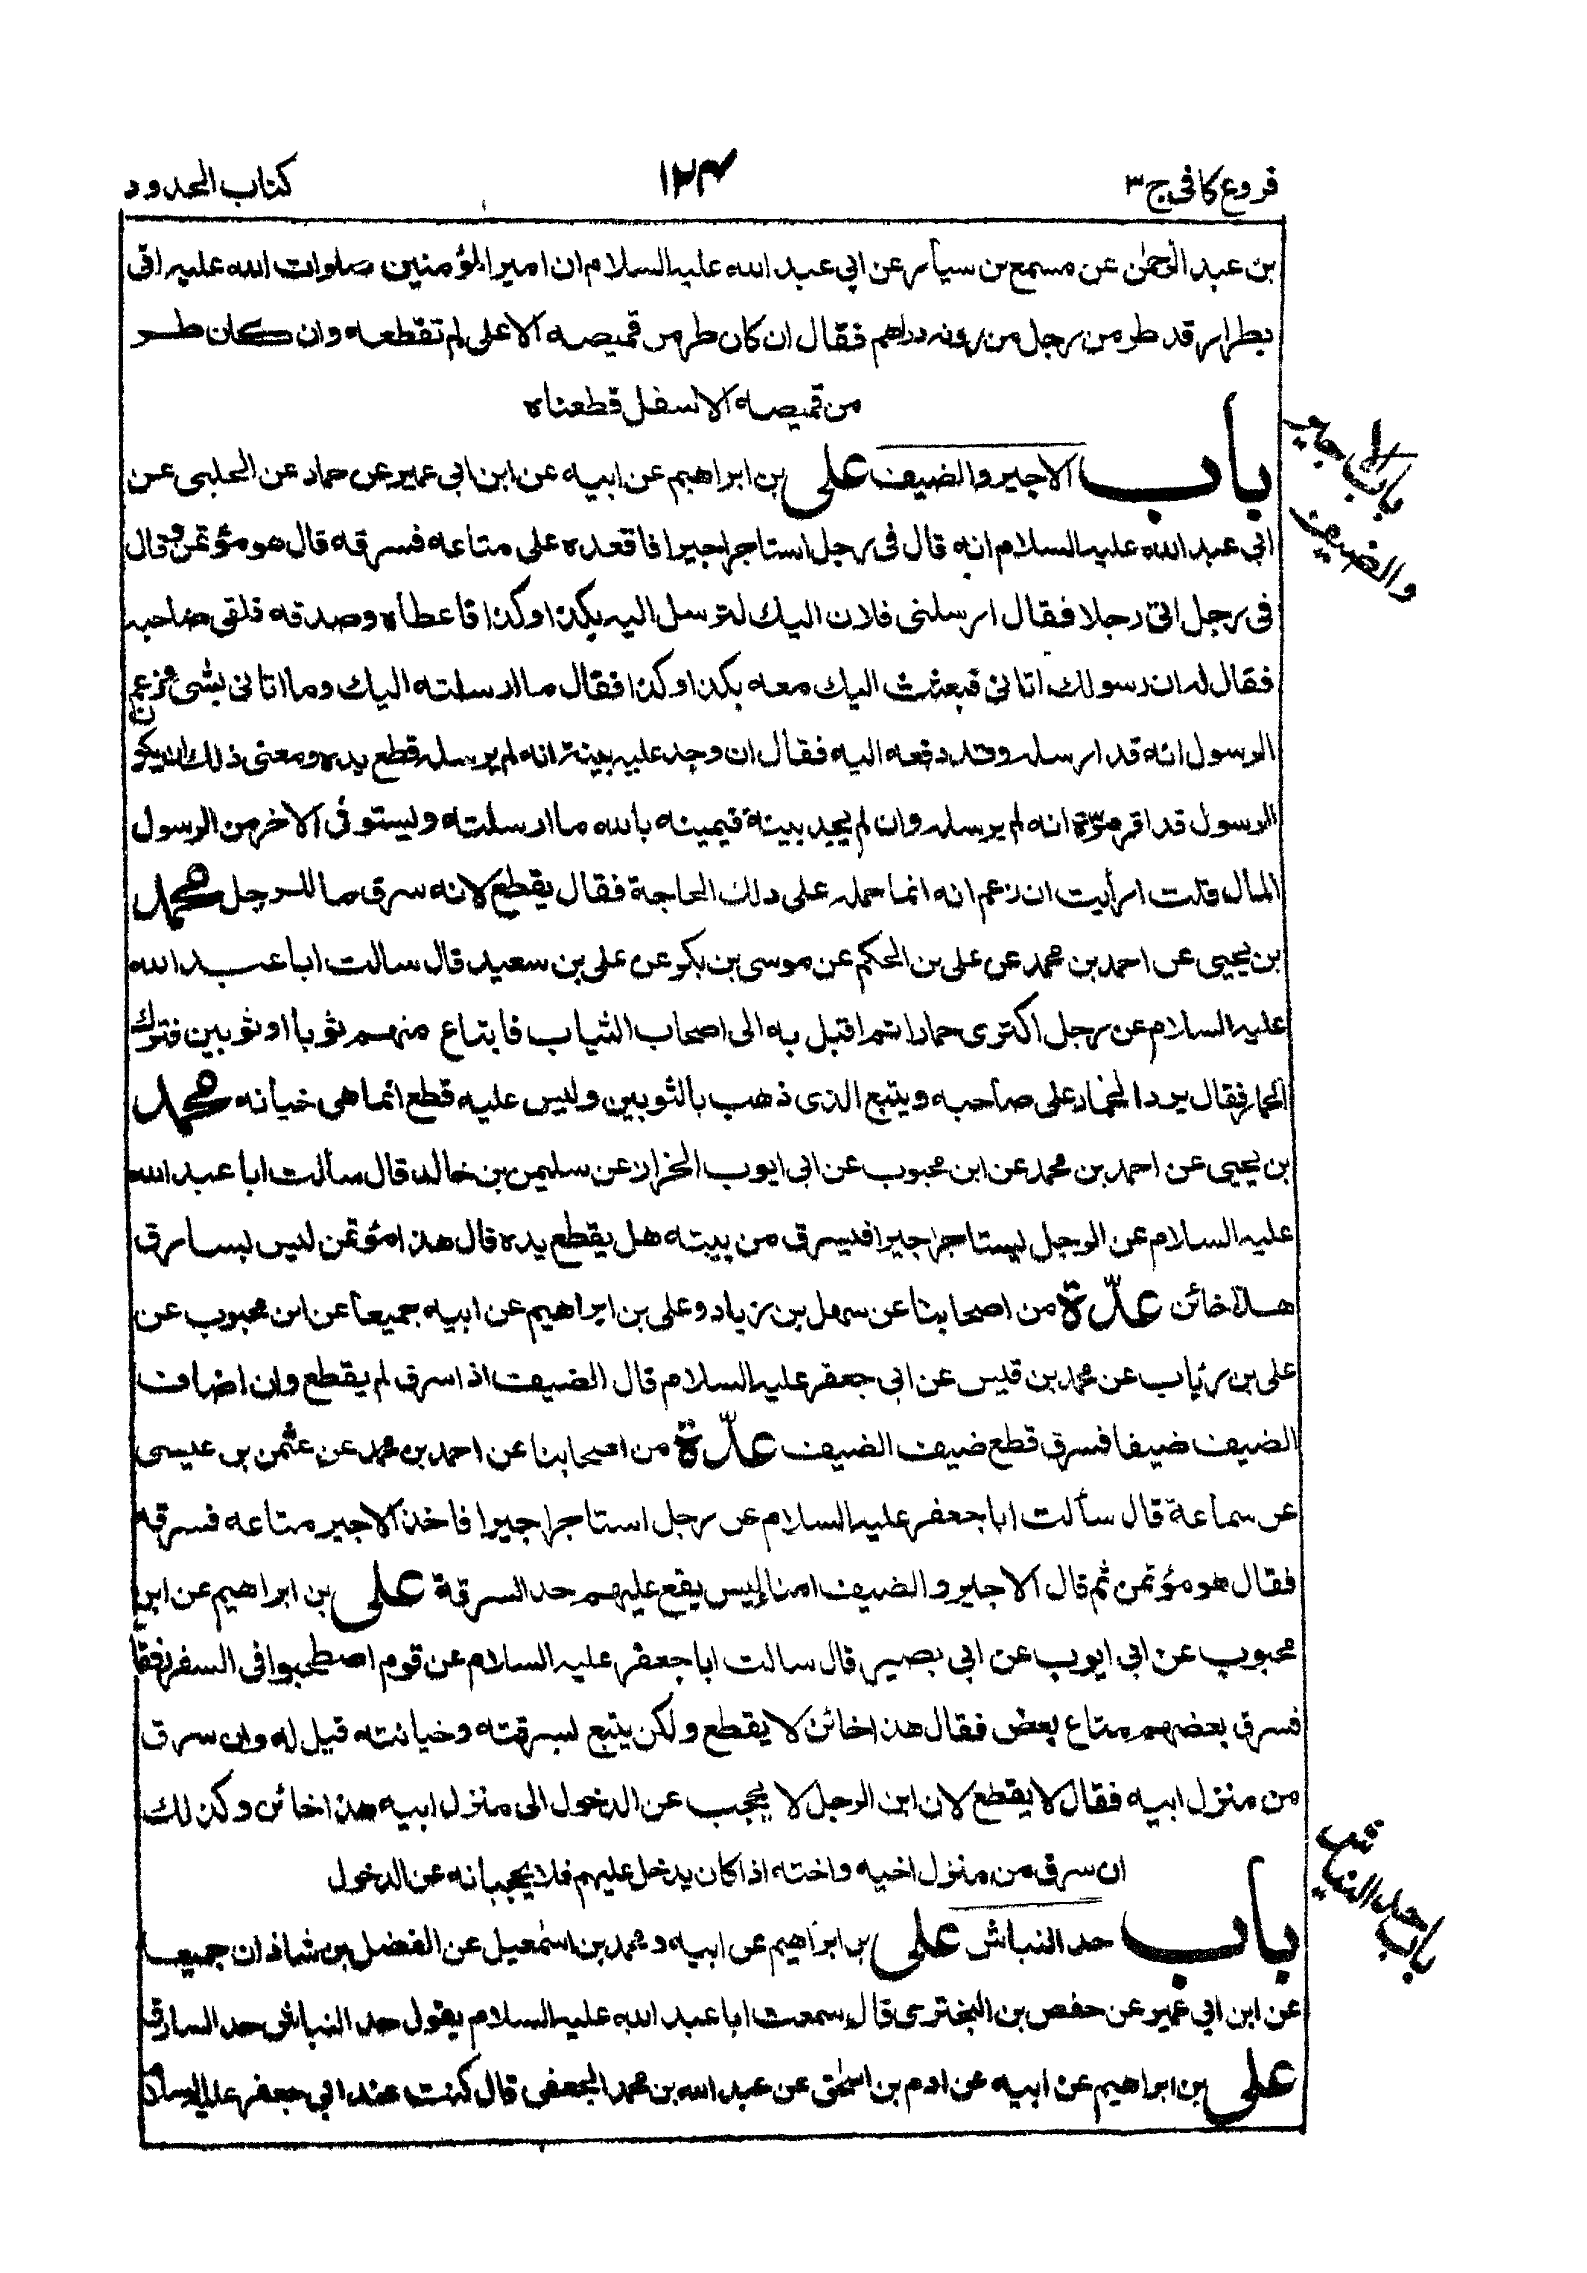 فروع كافى ج ٣
١٢٤
كتاب الحدود
بن عبد الرحمٰن عن مسمع بن سيار عن ابى عبد الله عليه السلام ان امير المؤمنين صلوات الله عليه اتى
بطرار قد طر من رجل من ردنه دراهم فقال ان كان طر من قميصه الاعلى لم نقطعه وان كان طــر
من قميصه الاسفل قطعناه
باب الاجير والضيف على بن ابراهيم عن ابيه عن ابن ابى عمير عن حماد عن الحلبى عن
ابى عبد الله عليه السلام انه قال فى رجل استاجر اجيرا فاقعده على متاعه فسرقه قال هو مؤتمن وقال
فى رجل اتى رجلا فقال ارسلنى فلان اليك لترسل اليه بكذا وكذا فاعطاه وصدقه فلقى صاحبه
فقال له ان رسولك اتانى فبعثت اليك معه بكذا وكذا فقال ما ارسلته اليك وما اتانى بشئ وزعم
الرسول انه قد ارسله وقد دفعه اليه فقال ان وجد عليه بينة انه لم يرسله قطع يده ومعنى ذلك ان يكون
الرسول قد اقر مرّة انه لم يرسله وان لم يجد بينة فيمينه بالله ما ارسلته ويستوفى الاخر من الرسول
المال قلت ارأيت ان زعم انه انما حمله على ذلك الحاجة فقال يقطع لانه سرق مال الرجل محمد
بن يحيى عن احمد بن محمد عن على بن الحكم عن موسى بن بكر عن على بن سعيد قال سالت ابا عبد الله
عليه السلام عن رجل اكترى حمارا ثم اقبل به الى اصحاب الثياب فابتاع منهم ثوبا او ثوبين فترك
الحمار فقال يرد الحمار على صاحبه ويتبع الذى ذهب بالثوبين وليس عليه قطع انما هى خيانه محمد
بن يحيى عن احمد بن محمد عن ابن محبوب عن ابى ايوب الخزاز عن سليمن بن خالد قال سألت ابا عبد الله
عليه السلام عن الرجل يستاجر اجيرا فيسرق من بيته هل يقطع يده قال هذا مؤتمن ليس بسارق
هذا خائن عدّة من اصحابنا عن سهل بن زياد وعلى بن ابراهيم عن ابيه جميعا عن ابن محبوب عن
على بن رئاب عن محمد بن قيس عن ابى جعفر عليه السلام قال الضيف اذا سرق لم يقطع وان اضاف
الضيف ضيفا فسرق قطع ضيف الضيف عدّة من اصحابنا عن احمد بن محمد عن عثمن بن عيسى
عن سماعة قال سألت ابا جعفر عليه السلام عن رجل استاجر اجيرا فاخذ الاجير متاعه فسرقه
فقال هو مؤتمن ثم قال الاجير والضيف امنا ليس يقع عليهم حد السرقة على بن ابراهيم عن ابن
محبوب عن ابى ايوب عن ابى بصير قال سالت ابا جعفر عليه السلام عن قوم اصطحبوا فى السفر رفقا
فسرق بعضهم متاع بعض فقال هذا خائن لا يقطع ولكن يتبع بسرقته وخيانته قيل له وان سرق
من منزل ابيه فقال لا يقطع لان ابن الرجل لا يحجب عن الدخول الى منزل ابيه هذا خائن وكذلك
ان سرق من منزل اخيه واخته اذا كان يدخل عليهم فلا يحجبانه عن الدخول
باب حد النباش على بن ابراهيم عن ابيه ومحمد بن اسمٰعيل عن الفضل بن شاذان جميعا
عن ابن ابى عمير عن حفص بن البخترى قال سمعت ابا عبد الله عليه السلام يقول حد النباش حد السارق
على بن ابراهيم عن ابيه عن ادم بن اسحٰق عن عبد الله بن محمد الجعفى قال كنت عند ابى جعفر عليه السلام
باب الاجير
والضيف
باب حد النباش